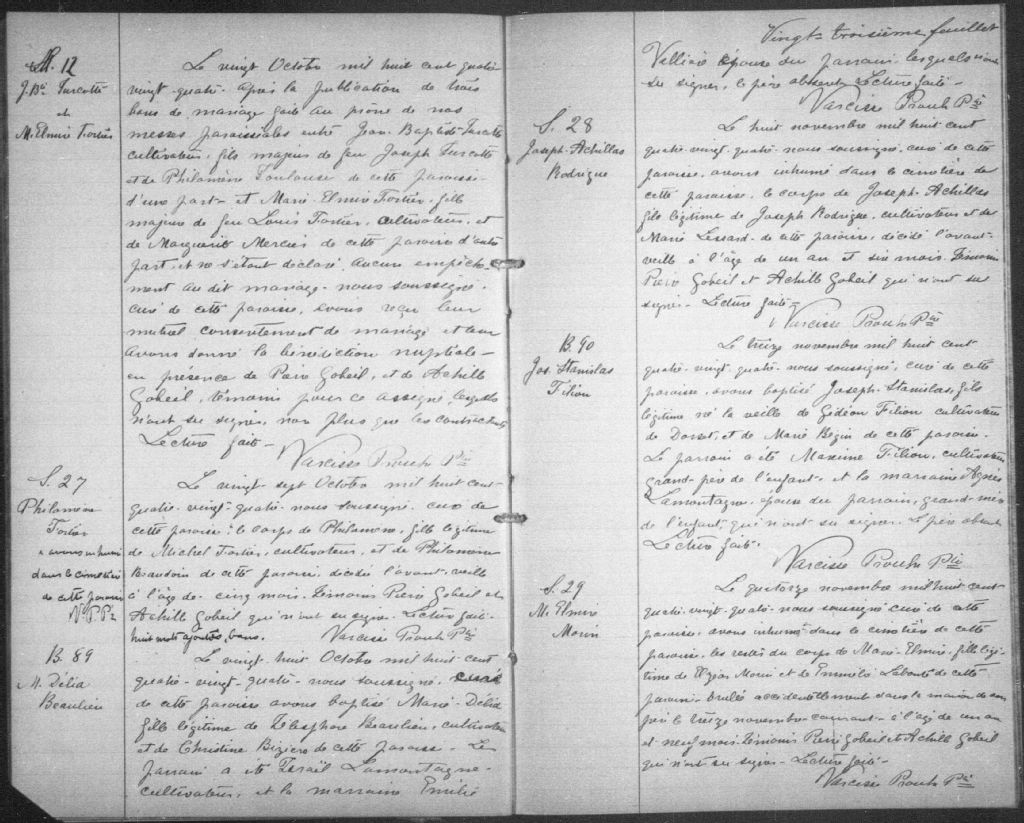 M. 12
J. Bte Turcotte
et
M. Elmire Fortier
Le vingt Octobre mil huit cent quatre
vingt-quatre après la publication de trois
bans de mariage faite au prône de nos
messes paroissiales entre Jean-Baptiste Turcotte
cultivateur, fils majeur de feu Joseph Turcotte
et de Philomène Toulouse de cette paroisse
d'une part et Marie Elmire Fortier, fille
majeure de feu Louis Fortier, cultivateur, et
de Marguerite Mercier de cette paroisse d'autre
part, et ne s'étant déclaré aucun empêche-
ment au dit mariage nous soussigné,
curé de cette paroisse, avons reçu leur
mutuel consentement de mariage et leur
avons donné la bénédiction nuptiale
en présence de Pierre Gobeil, et de Achille
Gobeil, témoins pour ce assigné lesquels
n'ont su signer non plus que les contractants
Lecture faite
Narcisse Proulx Ptre
S. 27
Philomène
Fortier
x avons inhumé
dans le cimetière
de cette paroisse
N. P. Ptre
Le vingt-sept Octobre mil huit cent
quatre-vingt-quatre nous soussigné, curé de
cette paroisse x le corps de Philomène, fille légitime
de Michel Fortier, cultivateur, et de Philomène
Beaudoin de cette paroisse, décédée l'avant-veille
à l'âge de cinq mois. Témoins Pierre Gobeil et
Achille Gobeil qui n'ont su signer. Lecture faite.
huit mots ajoutés bons. Narcisse Proulx Ptre
B. 89
M. Délia
Beaulieu
Le vingt-huit Octobre mil huit cent
quatre-vingt-quatre nous soussigné, curé
de cette paroisse avons baptisé Marie-Délia
fille légitime de Télesphore Beaulieu, cultivateur
et de Christine Bizière de cette paroisse. Le
parrain a été Israël Lamontagne
cultivateur, et la marraine Emilie
Vingt-troisième feuillet
épouse du parrain, lesquels n'ont
su signer, le père absent. Lecture faite
Narcisse Proulx Ptre
S. 28
Joseph-Achillas
Rodrigue
Le huit novembre mil huit cent
quatre-vingt-quatre nous soussigné, curé de cette
paroisse, avons inhumé dans le cimetière de
cette paroisse, le corps de Joseph-Achillas
fils légitime de Joseph Rodrigue, cultivateur et de
Marie Lessard de cette paroisse, décédé l'avant-
veille à l'âge de un an et six mois. Témoins
Pierre Gobeil et Achille Gobeil qui n'ont su
signer. Lecture faite
Narcisse Proulx Ptre
B. 90
Jos. Stanislas
Filion
Le treize novembre mil huit cent
quatre-vingt-quatre nous soussigné, curé de cette
paroisse, avons baptisé Joseph-Stanislas, fils
légitime né la veille de Gédéon Filion cultivateur
de Dorset, et de Marie Bégin de cette paroisse.
Le parrain a été Maxime Filion, cultivateur
grand-père de l'enfant, et la marraine Agnès
Lamontagne, épouse du parrain, grand-mère
de l'enfant, qui n'ont su signer. Le père absent
Lecture faite.
Narcisse Proulx Ptre
S. 29
M. Elmire
Morin
Le quatorze novembre mil huit cent
quatre-vingt-quatre nous soussigné curé de cette
paroisse avons inhumé dans le cimetière de cette
paroisse, les restes du corps de Marie-Elmire, fille légi-
time de Morin et de Emmélie Labonté de cette
paroisse brulée accidentellement dans la maison de son
père le treize novembre courant à l'âge de un an
et neuf mois. Témoins Pierre Gobeil et Achille Gobeil
qui n'ont su signer. Lecture faite
Narcisse Proulx Ptre